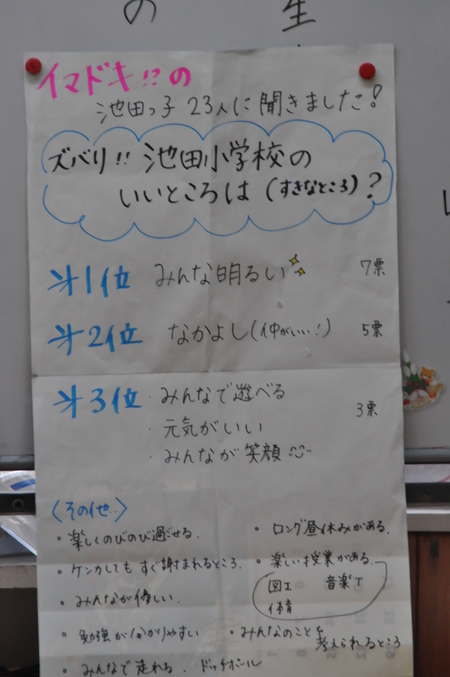 の
生
イマドキ!?の
池田っ子 23人に聞きました!
ズバリ!! 池田小学校の
いいところは(すきなところ)?
才1位 みんな明るい 7票
才2位 なかよし(仲がいい!) 5票
才3位 ・みんなで遊べる 3票
・元気がいい
・みんなが笑顔
〈その他〉
・楽しくのびのび過ごせる。
・ケンカしても すぐ謝まれるところ。
・みんなが優しい。
・勉強が分かりやすい
・みんなで走れる。ドッチボール
・ロング昼休みがある。
・楽しい授業がある。
図工 音楽
体育
・みんなのことを
考えられるところ